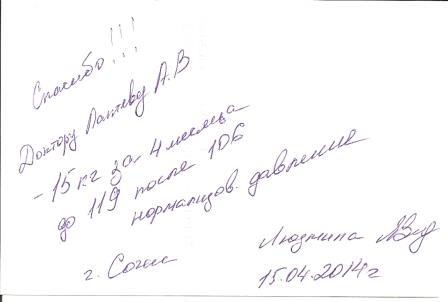 Спасибо!!!
Доктору Лаптеву А.В
-15 кг за 4 месяца
до 119 после 106
нормализов. давление
Людмила
г. Сочи
15.04.2014г